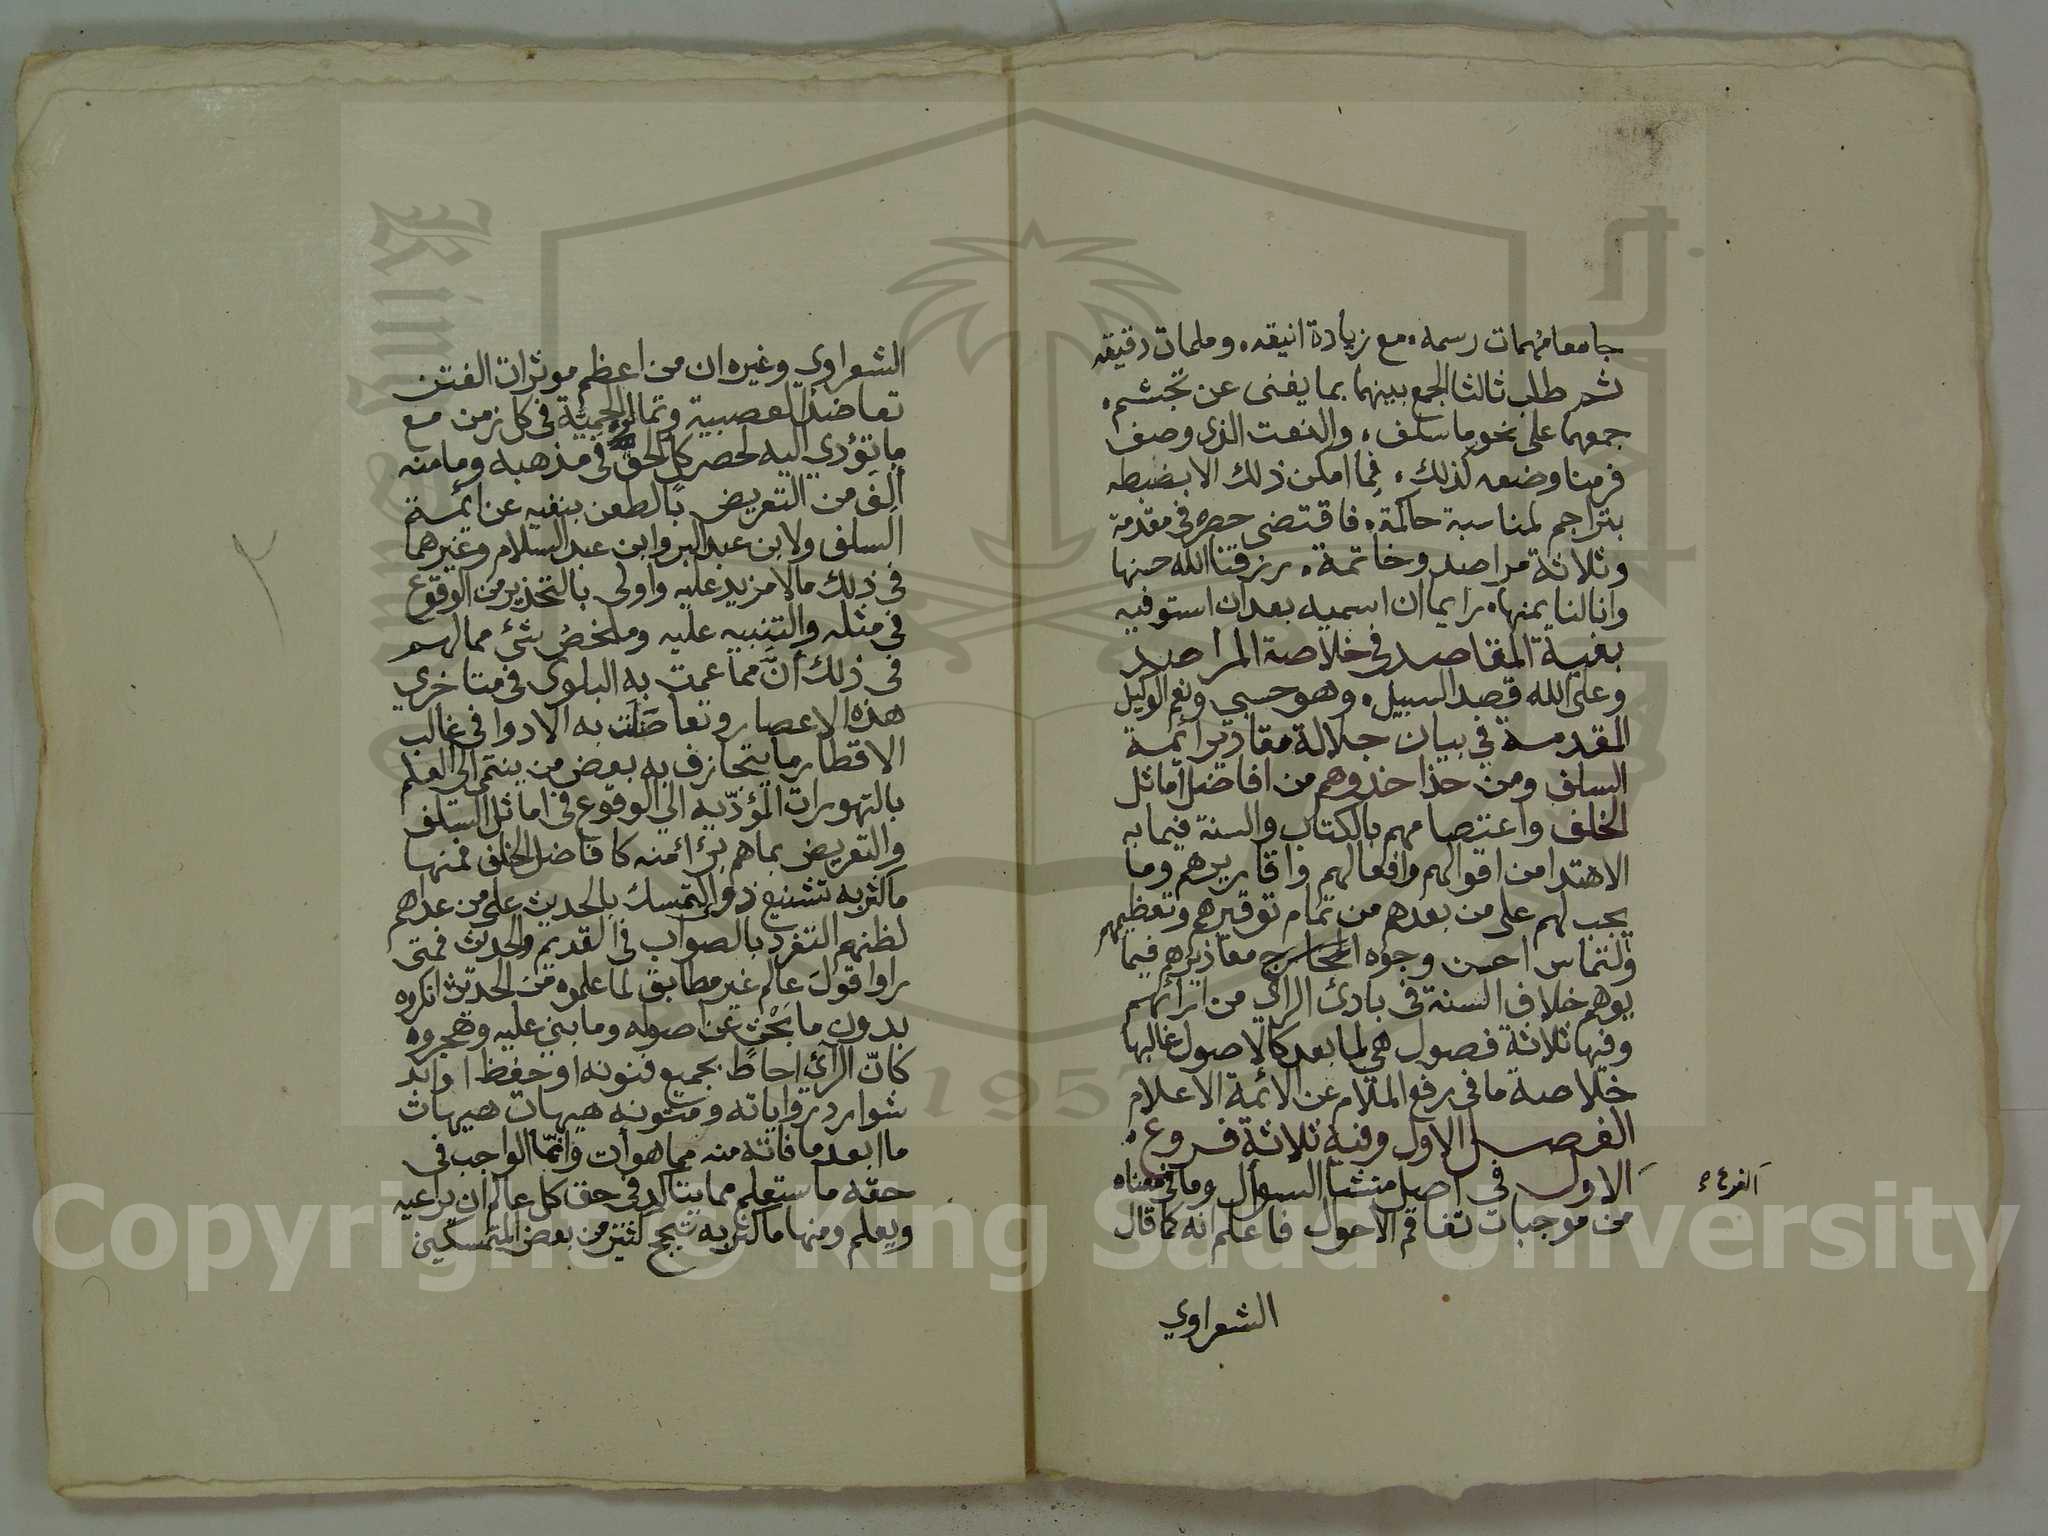 جامعا مهمات رسمه، مع زيادة انيقه، وملمات دقيقه
ثم طلب ثالثا الجمع بينهما بما يغنى عن تجشم،
جمعهما على نحو ما سلف، والنعت الذى وصف
فرمنا وضعه كذلك، فما امكن ذلك الا بضبطه
بتراجم لمناسبة حاكمة، فاقتضى حصره فى مقدمة
وثلاثة مراصد وخاتمة، رزقنا الله حسنها
وانالنا يمنها، رايما ان اسميه بعد ان استوفيه
بغية المقاصد فى خلاصة المراصد
وعلى الله قصد السبيل، وهو حسبي ونعم الوكيل
المقدمة في بيان جلالة مقادير ائمة
السلف ومن حذا حذوهم من افاضل اماثل
الخلف واعتصامهم بالكتاب والسنة فيما به
الاهتدا من اقوالهم وافعالهم واقاريرهم وما
يجب لهم على من بعدهم من تمام توقيرهم وتعظيمهم
والتماس احسن وجوه المخارج معاذيرهم فيما
يوهم خلاف السنة فى بادئ الراي من ارائهم
وفيها ثلاثة فصول هي لما بعد كالاصول غالبها
خلاصة ما فى رفع الملام عن الائمة الاعلام
الفصل الاول وفيه ثلاثة فروع،
الاول فى اصل منشا السوال وما فى معناه
من موجبات تفاقم الاحوال فاعلم انه كما قال
الشعراوي
الفرع
الشعراوي وغيره ان من اعظم موثرات الفتن
تعاضد العصبية وتمالو الحمية فى كل زمن مع
ما تؤدي اليه لحصر كل الحق فى مذهبه وما منه
ألف من التعريض بالطعن بنفيه عن ائمة
السلف ولابن عبد البر وابن عبد السلام وغيرهما
فى ذلك ما لا مزيد عليه واولى بالتحذير من الوقوع
في مثله والتنبيه عليه وملخص شئ مما لهم
فى ذلك أنّ مما عمت به البلوى فى متاخري
هذه الاعصار وتعاضلت به الادوا فى غالب
الاقطار ما يتجازف به بعض من ينتمى الى العلم
بالتهورات المؤدّيه الى الوقوع فى اماثل السلف
والتعريض بما هم برئ ائمنه كافاضل الخلف فمنها
ما كثر به تشنيع ذوي التمسك بالحديث على من عداهم
لظنهم التفرد بالصواب فى القديم والحدث فمتى
راوا قول عالم غير مطابق لما علموه من الحديث انكروه
بدون ما بحث عن اصوله وما بني عليه وهجروه
كانّ الرآئ احاط بجميع فنونه او حفظ اوابد
شوارد رواياته ومتونه هيهات هيهات
ما ابعد ما فاته منه مما هو أت وانما الواجب فى
حقه ما ستعلم مما يتاكد فى حق كل عالم ان يراعيه
ويعلم ومنها ما كثر به تبجح كثير من بعض المتمسكين
Copyright © King Saud University
1957